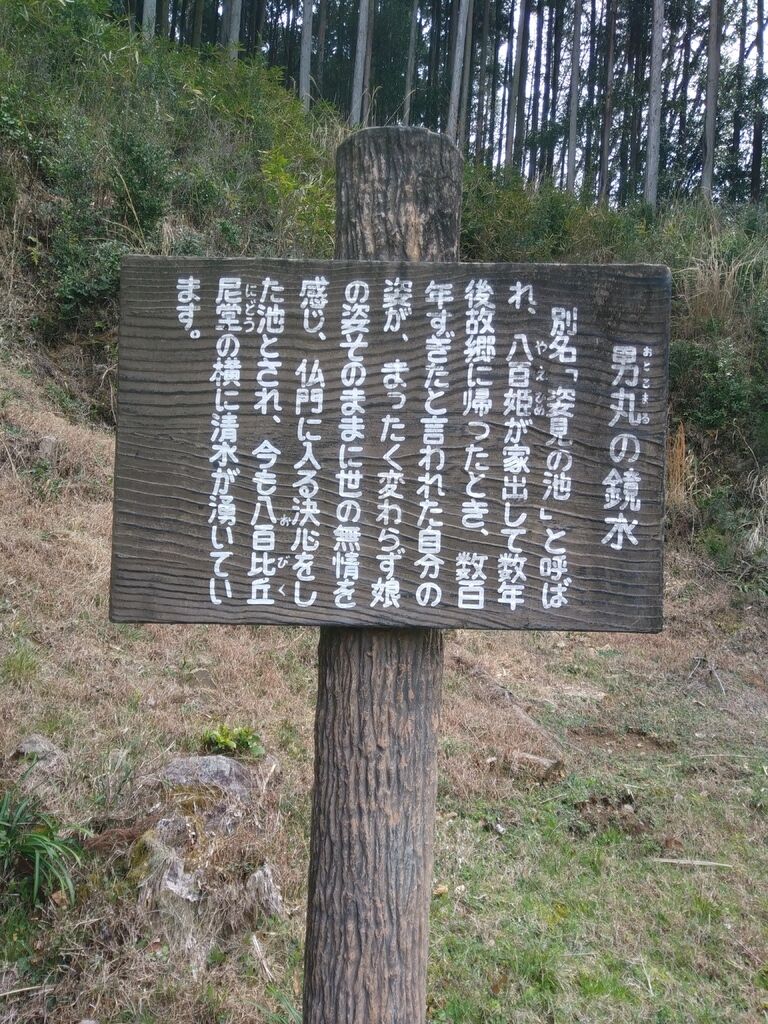 男丸の鏡水
おとこまる
別名「姿見の池」と呼ば
れ、八百姫が家出して数年
やえひめ
後故郷に帰ったとき、数百
年すぎたと言われた自分の
姿が、まったく変わらず娘
の姿そのままに世の無情を
感じ、仏門に入る決心をし
た池とされ、今も八百比丘
おびく
尼堂の横に清水が湧いてい
にどう
ます。